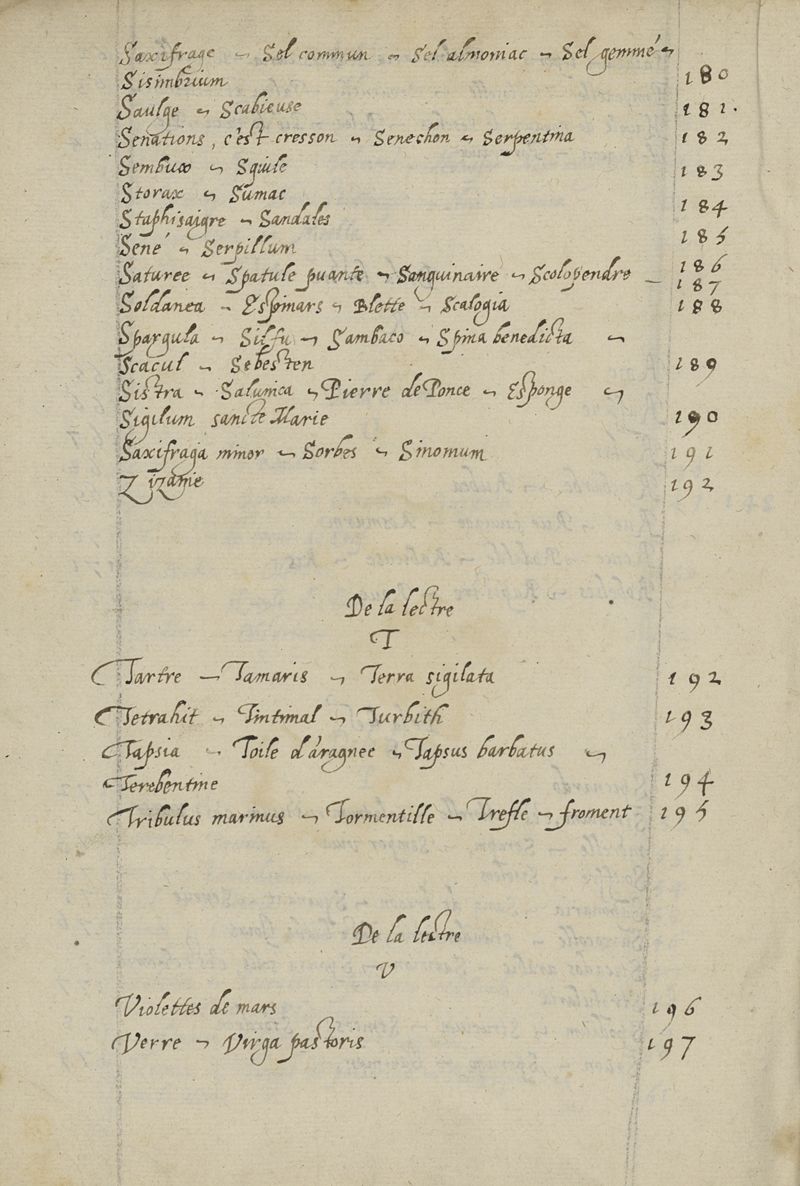 Saxifrage ~ Sel commun ~ Sel almoniac ~ Sel gemmé ~
Sisimbrium 180
Saulge ~ Scabieuse 181.
Senations, c'est cresson ~ Senechon ~ Serpentina 182
Sembux ~ Squile 183
Storax ~ Sumac
Staphisaigre ~ Sandales 184
Sené ~ Serpillum 185
Saturee ~ Spatule puante ~ Sanguinaire ~ Scolopendre 186
187
Soldanea ~ Espinars ~ Blette ~ Scalogia 188
Spargula ~ Silfu ~ Sambaco ~ Spina benedicta ~
Scacul ~ Sebesten 189
Sistra ~ Saliunca ~ Pierre de Ponce ~ Esponge ~
Sigilum sancte Marie 190
Saxifraga minor ~ Sorbes ~ Sinomum 191
Zizanie 192
De la lectre
T
Tartre ~ Tamaris ~ Terra sigilata 192
Tetrahit ~ Tintimal ~ Turbith 193
Tapsia ~ Toile d'aragnee ~ Tapsus barbatus ~
Terebentine 194
Tribulus marinus ~ Tormentille ~ Trefle ~ froment 195
De la lectre
V
Violettes de mars 196
Verre ~ Virga pastoris 197